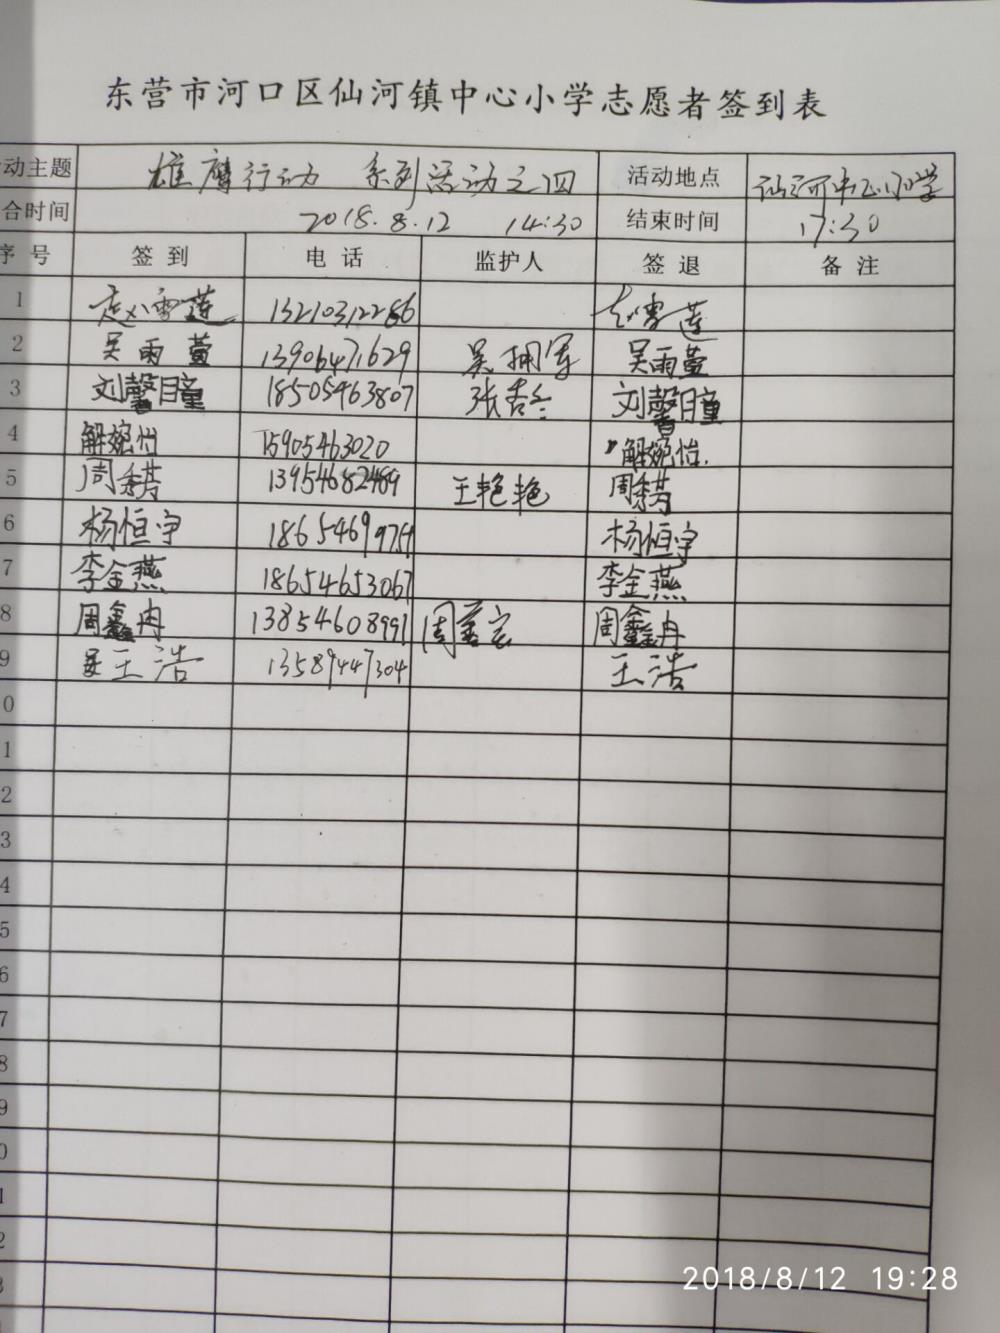 东营市河口区仙河镇中心小学志愿者签到表
动主题 雄鹰行动 系列活动之四 活动地点 仙河中心小学
合时间 2018.8.12 14:30 结束时间 17:30
序号 签到 电话 监护人 签退 备注
1 赵雪莲 13210312286 赵雪莲
2 吴雨萱 13906471629 吴拥军 吴雨萱
3 刘馨瞳 18505463807 刘馨瞳
4 解婉怡 15905463020 解婉怡.
5 周秀芳 13954682489 王艳艳 周秀芳
6 杨恒宇 杨恒宇
7 李金燕 18654653067 李金燕
8 周鑫冉 13854608991 周鑫冉
9 王浩 13589447304 王浩
0
1
2
3
4
5
6
7
8
9
0
1
2
3
2018/8/12 19:28